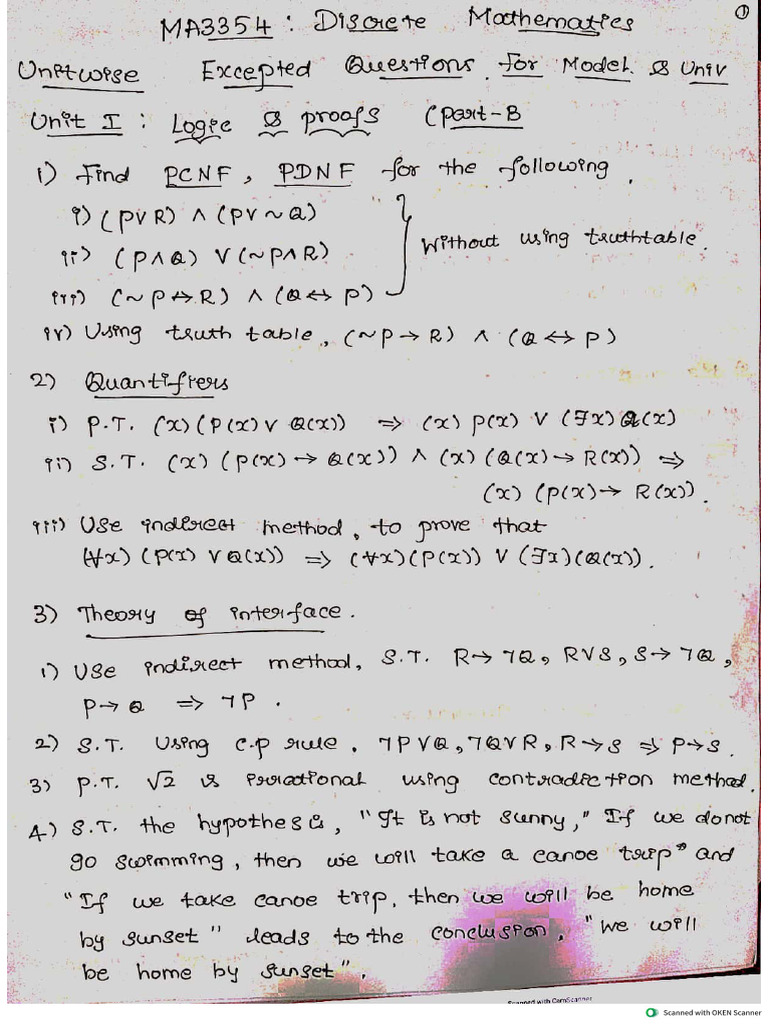 ①
MA3354 : Discrete Mathematics
Unitwise Excepted Questions for Model & Univ
Unit I : Logic & proofs (part-B
1) Find PCNF, PDNF for the following.
i) (P∨R) ∧ (P∨~Q)
ii) (P∧Q) ∨ (~P∧R)
iii) (~P↔R) ∧ (Q↔P)
Without using truthtable.
iv) Using truth table, (~P→R) ∧ (Q↔P)
2) Quantifiers
i) P.T. (x)(P(x)∨ Q(x)) ⇒ (x) P(x) ∨ (∃x)Q(x)
ii) S.T. (x) (P(x)→ Q(x)) ∧ (x) (Q(x)→ R(x)) ⇒
(x) (P(x)→ R(x)).
iii) Use indirect method, to prove that
(∀x) (P(x) ∨Q(x)) ⇒ (∀x)(P(x)) ∨ (∃x)(Q(x)).
3) Theory of interface.
1) Use indirect method, S.T. R→ ¬Q, R∨S, S→ ¬Q,
P→ Q ⇒ ¬P.
2) S.T. Using c.p rule, ¬P∨Q, ¬Q∨R, R→S ⇒ P→S.
3) P.T. √2 is irrational using contradiction method.
4) S.T. the hypothesis, "It is not sunny," If we do not
go swimming, then we will take a canoe trip" and
"If we take canoe trip, then we will be home
by sunset" leads to the conclusion, "we will
be home by sunset".
Scanned with CamScanner
Scanned with OKEN Scanner